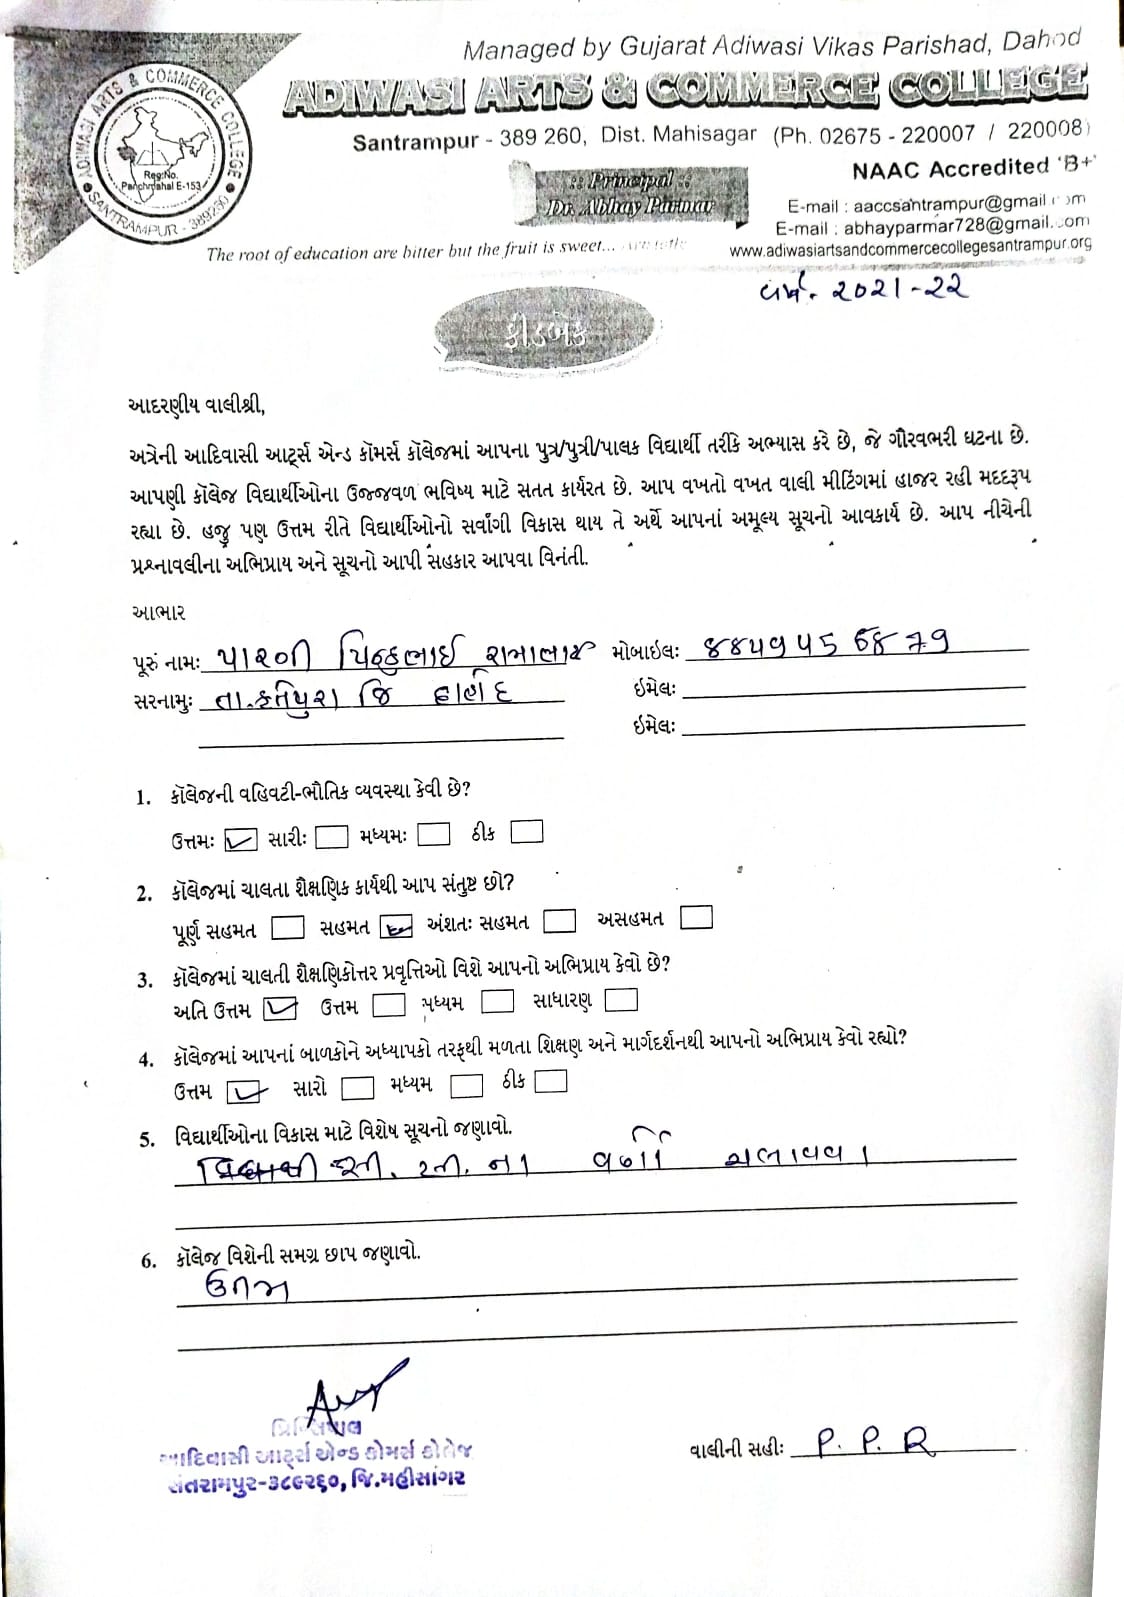 Managed by Gujarat Adiwasi Vikas Parishad, Dahod
ADIWASI ARTS & COMMERCE COLLEGE
Santrampur - 389 260, Dist. Mahisagar (Ph. 02675 - 220007 / 220008)
ADIWASI ARTS & COMMERCE COLLEGE
Reg:No.
Panchmahal E-153
SANTRAMPUR - 389260
NAAC Accredited 'B+'
:: Principal ::
Dr. Abhay Parmar
E-mail : aaccsantrampur@gmail.com
E-mail : abhayparmar728@gmail.com
The root of education are bitter but the fruit is sweet...
www.adiwasiartsandcommercecollegesantrampur.org
વર્ષ. 2021-22
ફીડબેક
આદરણીય વાલીશ્રી,
અત્રેની આદિવાસી આર્ટ્સ એન્ડ કૉમર્સ કૉલેજમાં આપના પુત્ર/પુત્રી/પાલક વિદ્યાર્થી તરીકે અભ્યાસ કરે છે, જે ગૌરવભરી ઘટના છે.
આપણી કૉલેજ વિદ્યાર્થીઓના ઉજ્જવળ ભવિષ્ય માટે સતત કાર્યરત છે. આપ વખતો વખત વાલી મીટિંગમાં હાજર રહી મદદરૂપ
રહ્યા છે. હજુ પણ ઉત્તમ રીતે વિદ્યાર્થીઓનો સર્વાંગી વિકાસ થાય તે અર્થે આપનાં અમૂલ્ય સૂચનો આવકાર્ય છે. આપ નીચેની
પ્રશ્નાવલીના અભિપ્રાય અને સૂચનો આપી સહકાર આપવા વિનંતી.
આભાર
પૂરું નામઃ પારગી મોબાઇલઃ
સરનામુઃ તા. ફતેપુરા જિ દાહોદ ઇમેલઃ
ઇમેલઃ
1. કૉલેજની વહિવટી-ભૌતિક વ્યવસ્થા કેવી છે?
ઉત્તમઃ સારીઃ મધ્યમઃ ઠીક
2. કૉલેજમાં ચાલતા શૈક્ષણિક કાર્યથી આપ સંતુષ્ટ છો?
પૂર્ણ સહમત સહમત અંશતઃ સહમત અસહમત
3. કૉલેજમાં ચાલતી શૈક્ષણિકોત્તર પ્રવૃત્તિઓ વિશે આપનો અભિપ્રાય કેવો છે?
અતિ ઉત્તમ ઉત્તમ મધ્યમ સાધારણ
4. કૉલેજમાં આપનાં બાળકોને અધ્યાપકો તરફથી મળતા શિક્ષણ અને માર્ગદર્શનથી આપનો અભિપ્રાય કેવો રહ્યો?
ઉત્તમ સારો મધ્યમ ઠીક
5. વિદ્યાર્થીઓના વિકાસ માટે વિશેષ સૂચનો જણાવો.
સી. સી. ના વર્ગો ચલાવવા
6. કૉલેજ વિશેની સમગ્ર છાપ જણાવો.
ઉતમ
પ્રિન્સિપાલ
આદિવાસી આર્ટ્સ એન્ડ કોમર્સ કોલેજ
સંતરામપુર-૩૮૯૨૬૦, જિ.મહીસાગર
વાલીની સહીઃ P. P. R